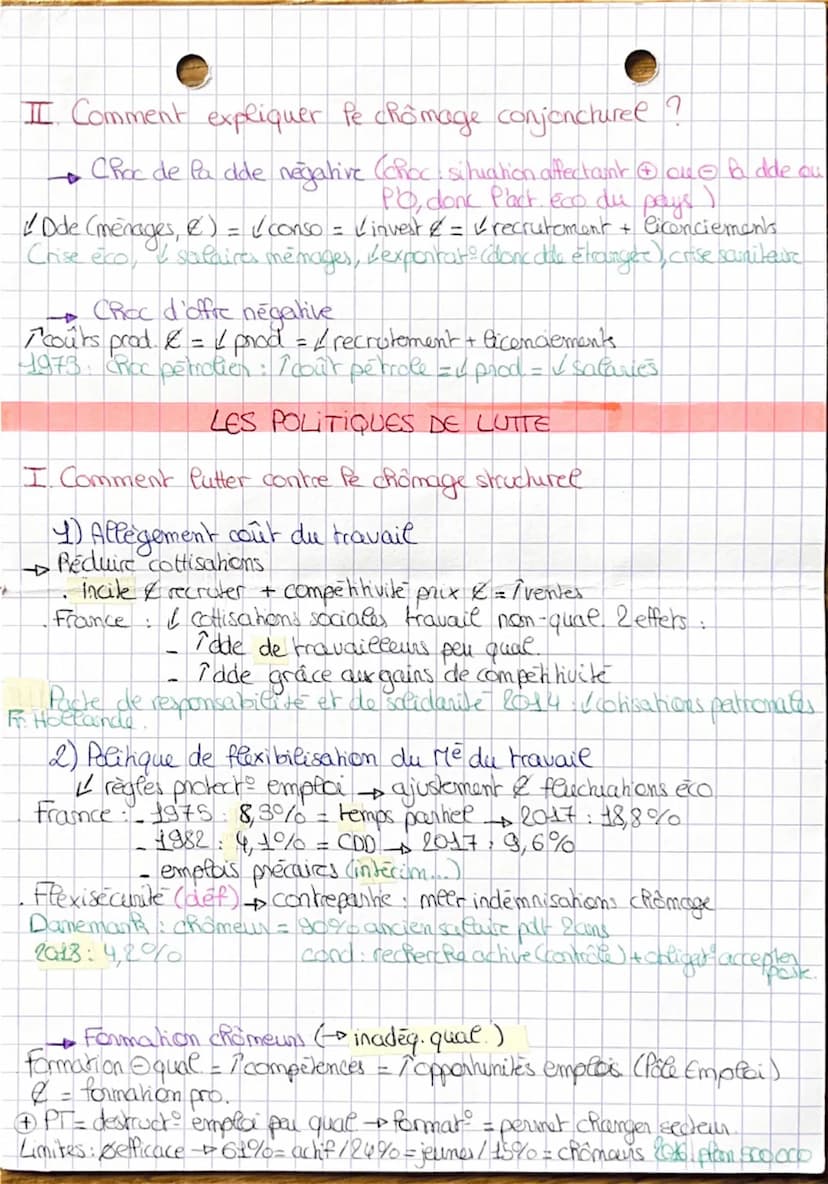 II. Comment expliquer le chômage conjoncturel ?
→ Choc de la dde négative (choc : situation affectant ⊕ ou ⊖ la dde ou
l'O, donc l'act. éco du pays)
↓ Dde (ménages, €) = ↓ conso = ↓ invest € = ↓ recrutement + licenciements
Crise éco, ↓ salaires ménages, ↓ exportat° (donc dde étrangère), crise sanitaire
→ Choc d'offre négative
↑ coûts prod. € = ↓ prod = ↓ recrutement + licenciements
1973 : choc pétrolier : ↑ coût pétrole = ↓ prod = ↓ salariés
LES POLITIQUES DE LUTTE
I. Comment lutter contre le chômage structurel
1) Allègement coût du travail
→ Réduire cottisations
. incite € recruter + compétitivité prix € = ↑ ventes
. France : ↓ cottisations sociales travail non-qual. 2 effets :
- ↑ dde de travailleurs peu qual.
- ↑ dde grâce aux gains de compétitivité
Pacte de responsabilité et de solidarité 2014 : ↓ cotisations patronales
Fr. Hollande.
2) Politique de flexibilisation du Mé du travail
↓ règles protect° emploi → ajustement € fluctuations éco
France : - 1975 : 8,3% = temps partiel → 2017 : 18,8%
- 1982 : 4,1% = CDD → 2017 : 9,6%
- emplois précaires (intérim...)
. Flexisécurité (déf) → contrepartie : meer indémnisations chômage
Danemark : chômeur = 90% ancien salaire pdt 2 ans
2013 : 4,2% cond : recherche active (contrôle) + obligat° accepter
poste.
→ Formation chômeurs (→ inadéq. qual.)
Formation ⊖ qual = ↑ compétences = ↑ opportunités emplois (Pôle Emploi)
€ = formation pro.
⊕ PT = destruct° emploi peu qual → format° = permet changer secteur.
Limites : efficace → 61% = actif / 24% = jeunes / 15% = chômeurs plan 500 000